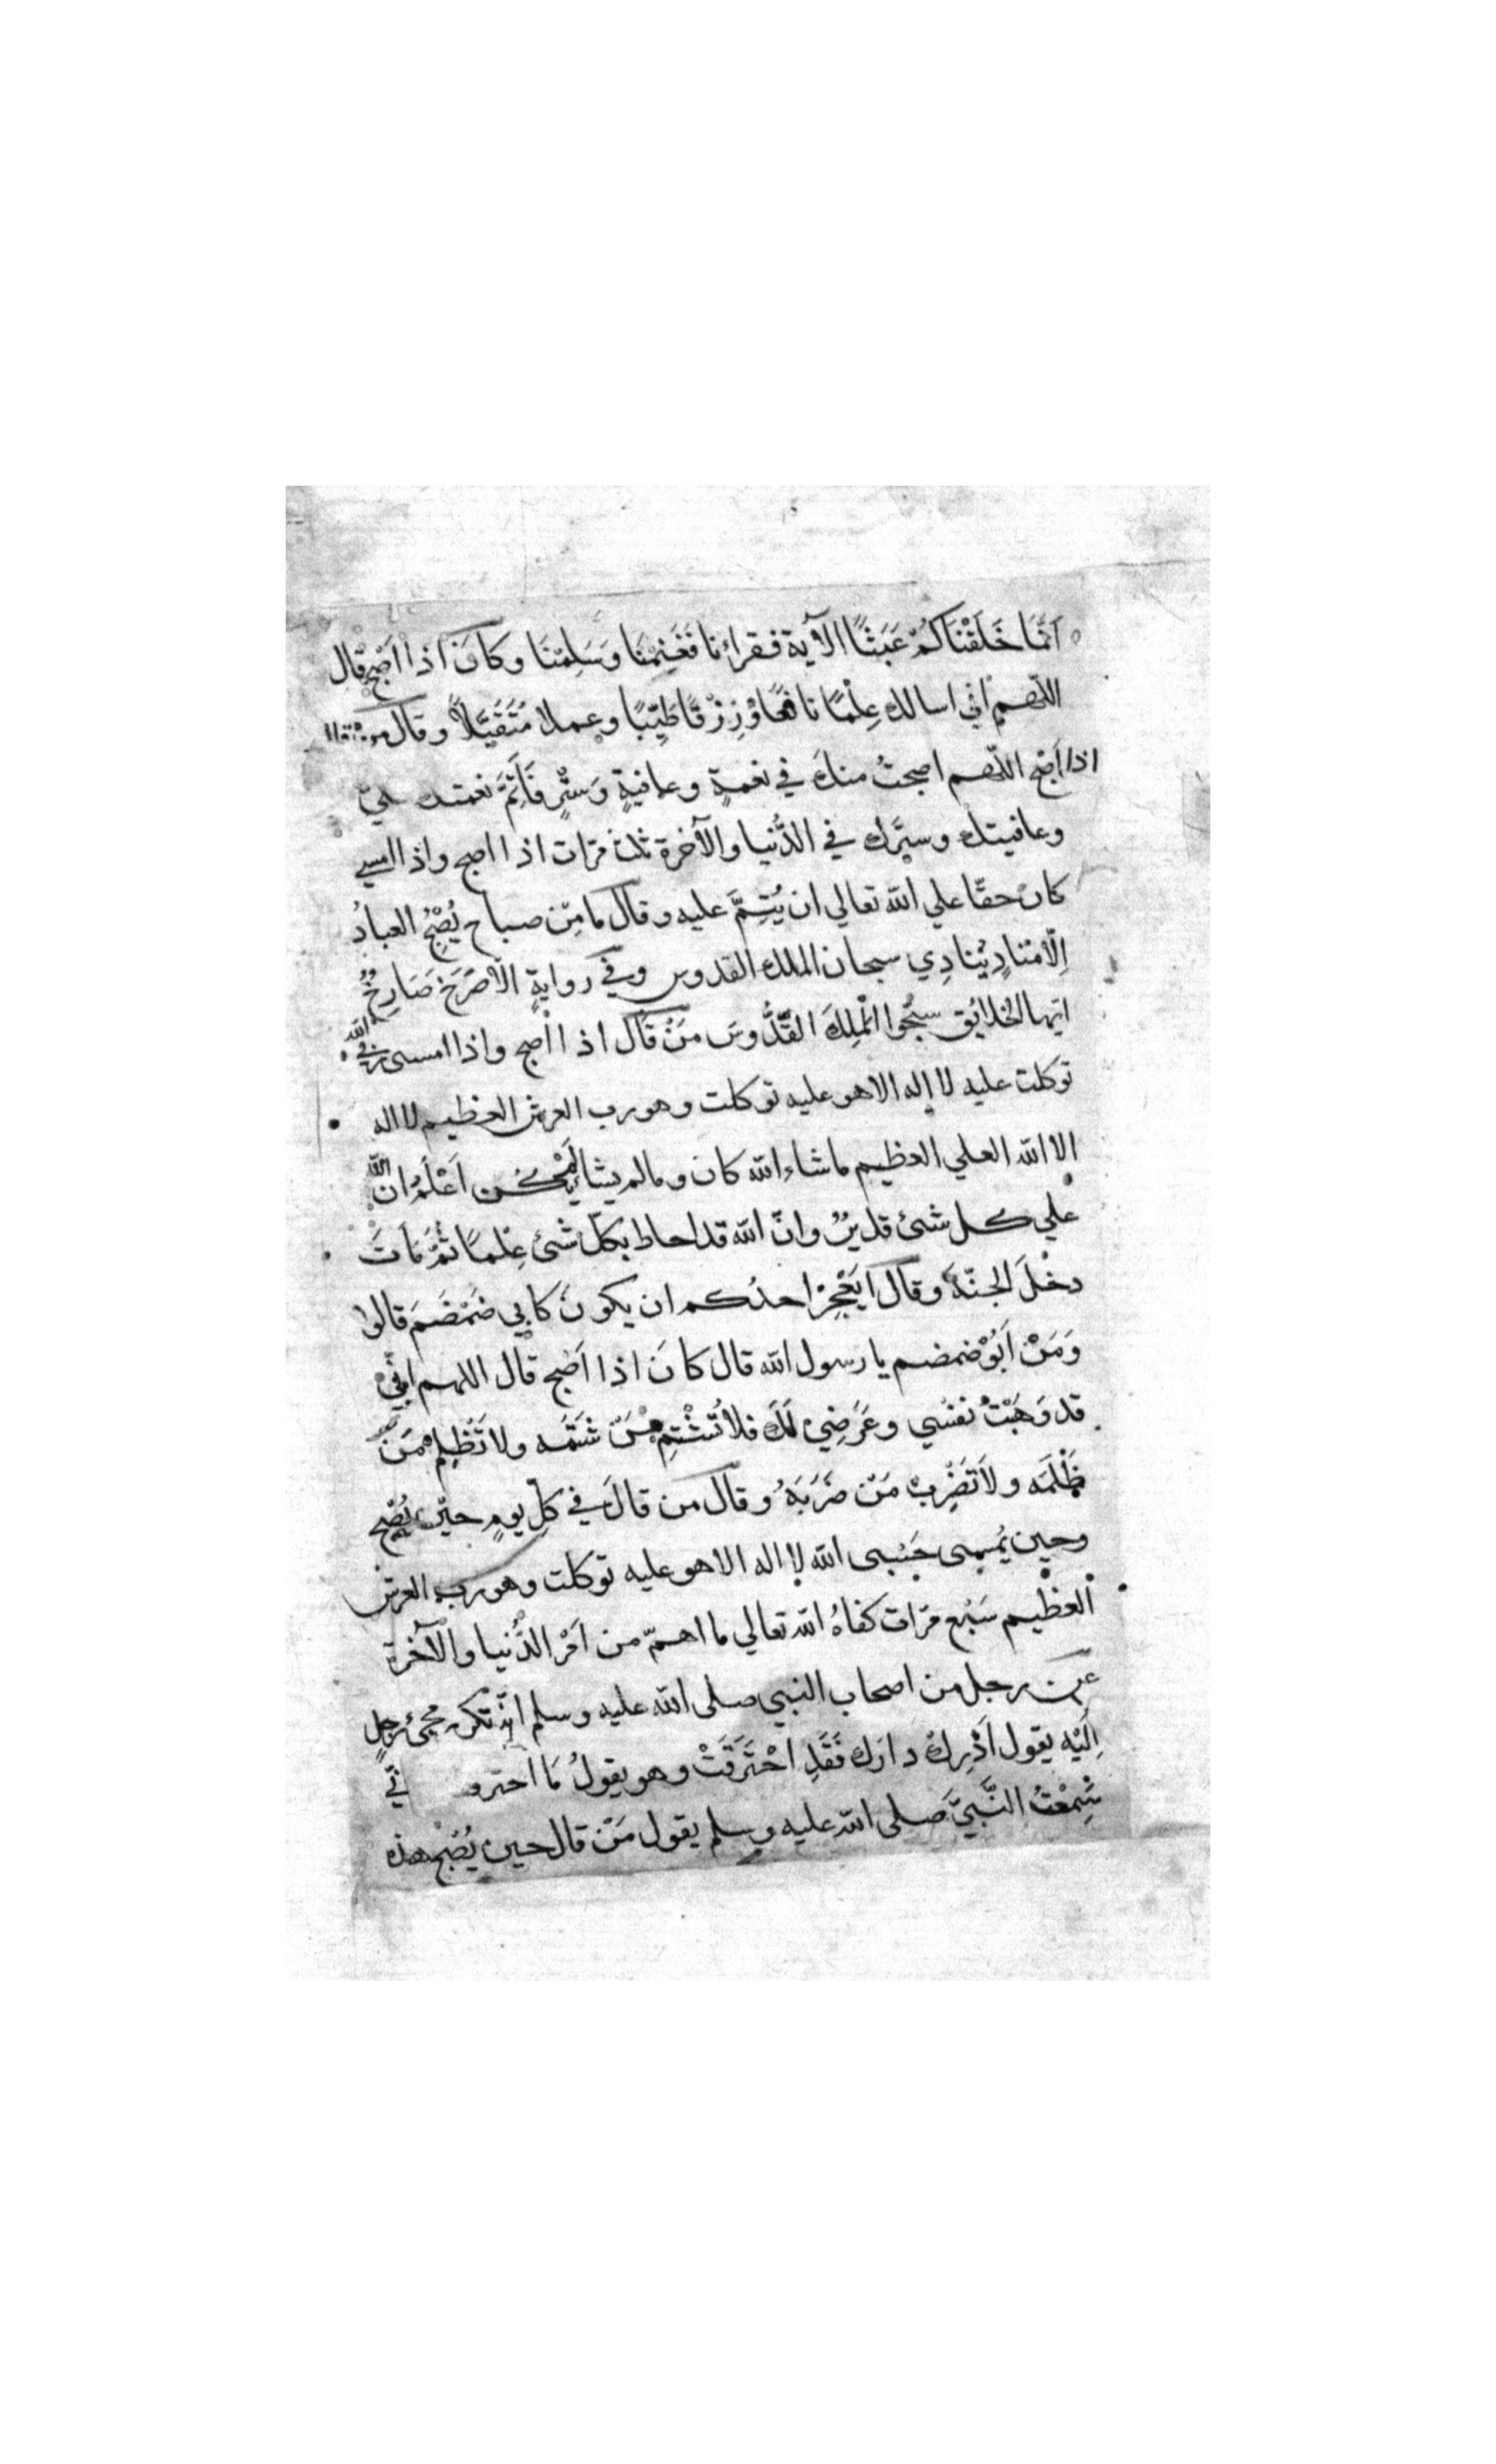 اَنَّمَا خَلَقْنَاكُمْ عَبَثًا الآية فقراءنا فَغَنِمْنَا وَسَلِمْنَا وكَانَ اذا اَصْبَحَ قال
اللّهم انى اسالك عِلْمًا نافعًا وَرِزْقًا طَيِّبًا وعملا مُتَقَبَّلاً وقال من قال
اذا اَصْبَح اللّهم اصبحتُ منكَ في نعمةٍ وعافيةٍ وَسَتْرٍ فَاَتِمَّ نعمتك عليّ
وعافيتك وستْرك في الدُّنيا والآخرة ثلث مَرّات اذا اصبح واذا امسي
كان حقّا علي الله تعالي ان يُتِمَّ عليه وقال مَا مِنْ صباح يُصْبِحُ العبادُ
اِلّا مُنادٍ يُنادِي سبحان الملك القدوس وفي روايةٍ الّا صَرَخَ صَارِخٌ
ايها الخلايُق سبِّحُوا الْمَلِكَ القُدُّوسَ مَنْ قَالَ اذا اصبح واذا امسى ربي الله
توكلت عليه لا إله الا هو عليه توكلت وهو رب العرش العظيم لا اله
الا الله العلي العظيم ما شاء الله كان وما لم يشا لَمْ يكُن اَعْلَمُ ان الله
علي كل شئ قديرٌ وانّ الله قد احاط بكلّ شئ عِلْمًا ثُمَّ مَاتَ
دخلَ الجنّة وقال اَيَعْجِزُ احدُكم ان يكونَ كابي ضَمْضَمَ قالوا
وَمَنْ اَبُوْ ضمضم يا رسول الله قال كانَ اذا اَصْبح قال اللهم انّي
قد وَهَبْتُ نفسي وعَرَضِيْ لَكَ فلا تُشْتِمْ مَنْ شَتَمَه ولا تَظْلِمْ مَنْ
ظَلَمَه ولاَ تَضْرِبْ مَنْ ضَرَبَهُ وقال من قالَ في كلّ يومٍ حيْن يُصْبح
وحين يُمسِى حَسْبى الله لا اله الا هو عليه توكلت وهو رب العرش
العظيم سَبْع مرّات كفاهُ الله تعالي ما اهمّ من اَمْر الدُّنيا والآخرة
عن رجل من اصحاب النبي صلى الله عليه وسلم انه تكرر مجئ رجلٍ
اِلَيْه يقول اَدْرِكْ دارَك فَقَدِ احْتَرَقَتْ وهو يقولُ مَا احترق
سَمِعْتُ النَّبيَّ صلى الله عليه وسلم يقول مَنْ قال حين يُصْبح هذه